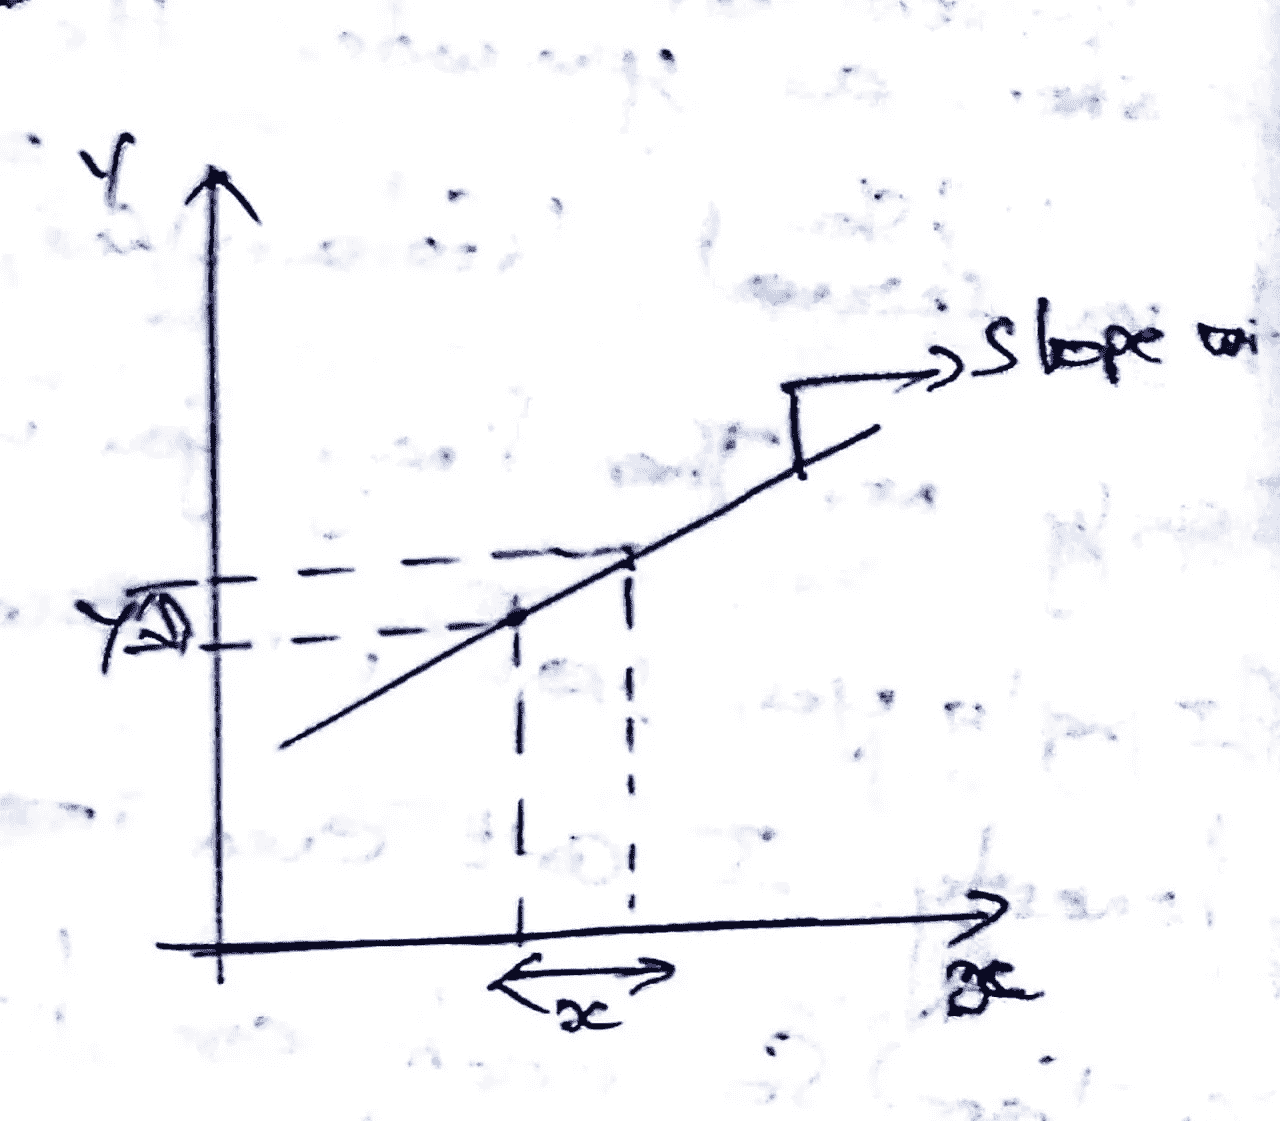 Y
Slope
Y
x
x